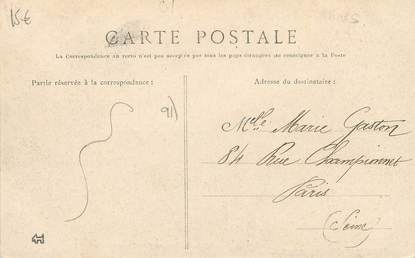 15€
CARTE POSTALE
La Correspondance au recto n'est pas acceptée par tous les pays étrangers se renseigner à la Poste
Partie réservée à la correspondance:
Adresse du destinataire:
91)
Melle Marie Gaston
84 Rue Championnet
Paris
(Seine)